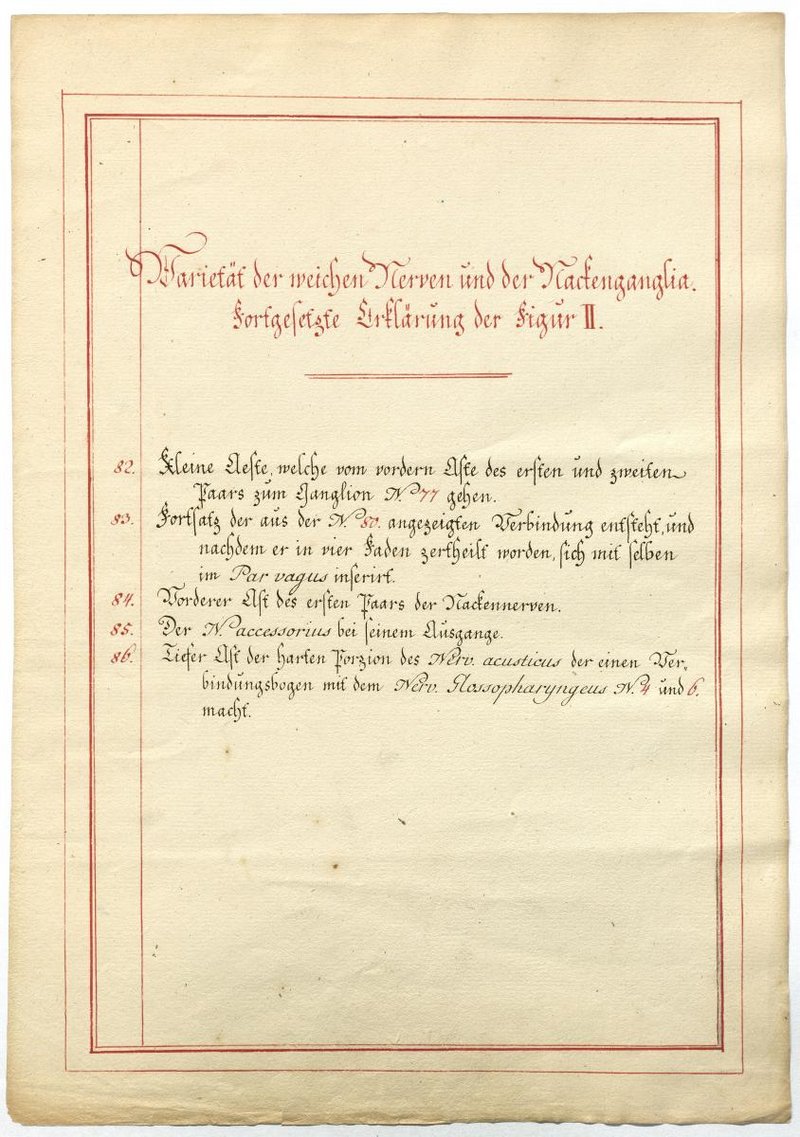 Varietät der weichen Nerven und der Nackenganglia.
Fortgesetzte Erklärung der Figur II.
82. Kleine Aeste, welche vom vordern Aste des ersten und zweiten
Paars zum Ganglion N. 77 gehen.
83. Fortsatz der aus der N. 80. angezeigten Verbindung entsteht, und
nachdem er in vier Faden zertheilt worden, sich mit selben
im Par vagus inserirt.
84. Vorderer Ast des ersten Paars der Nackennerven.
85. Der N. accessorius bei seinem Ausgange.
86. Tiefer Ast der harten Porzion des Nerv. acusticus der einen Ver-
bindungsbogen mit dem Nerv. Glossopharyngeus N. 4 und 6.
macht.